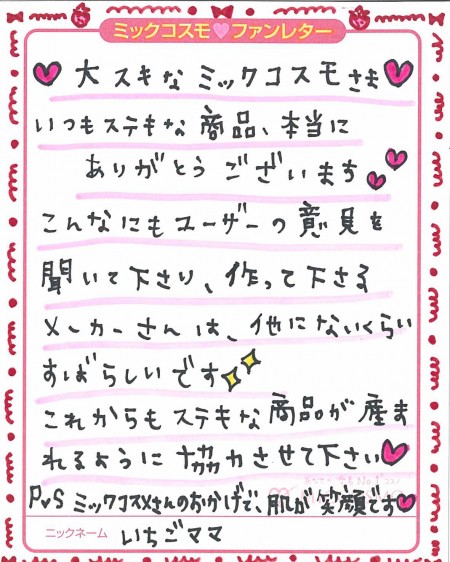 ミックコスモ♥ファンレター
♥大スキなミックコスモさま♥
いつもステキな商品、本当に
ありがとうございます♥♥
こんなにもユーザーの意見を
聞いて下さり、作って下さる
メーカーさんは、他にないくらい
すばらしいです
これからもステキな商品が産ま
れるように協力させて下さい♥
P♥S ミックコスメさんのおかげで、肌が笑顔です♥
ニックネーム いちごママ